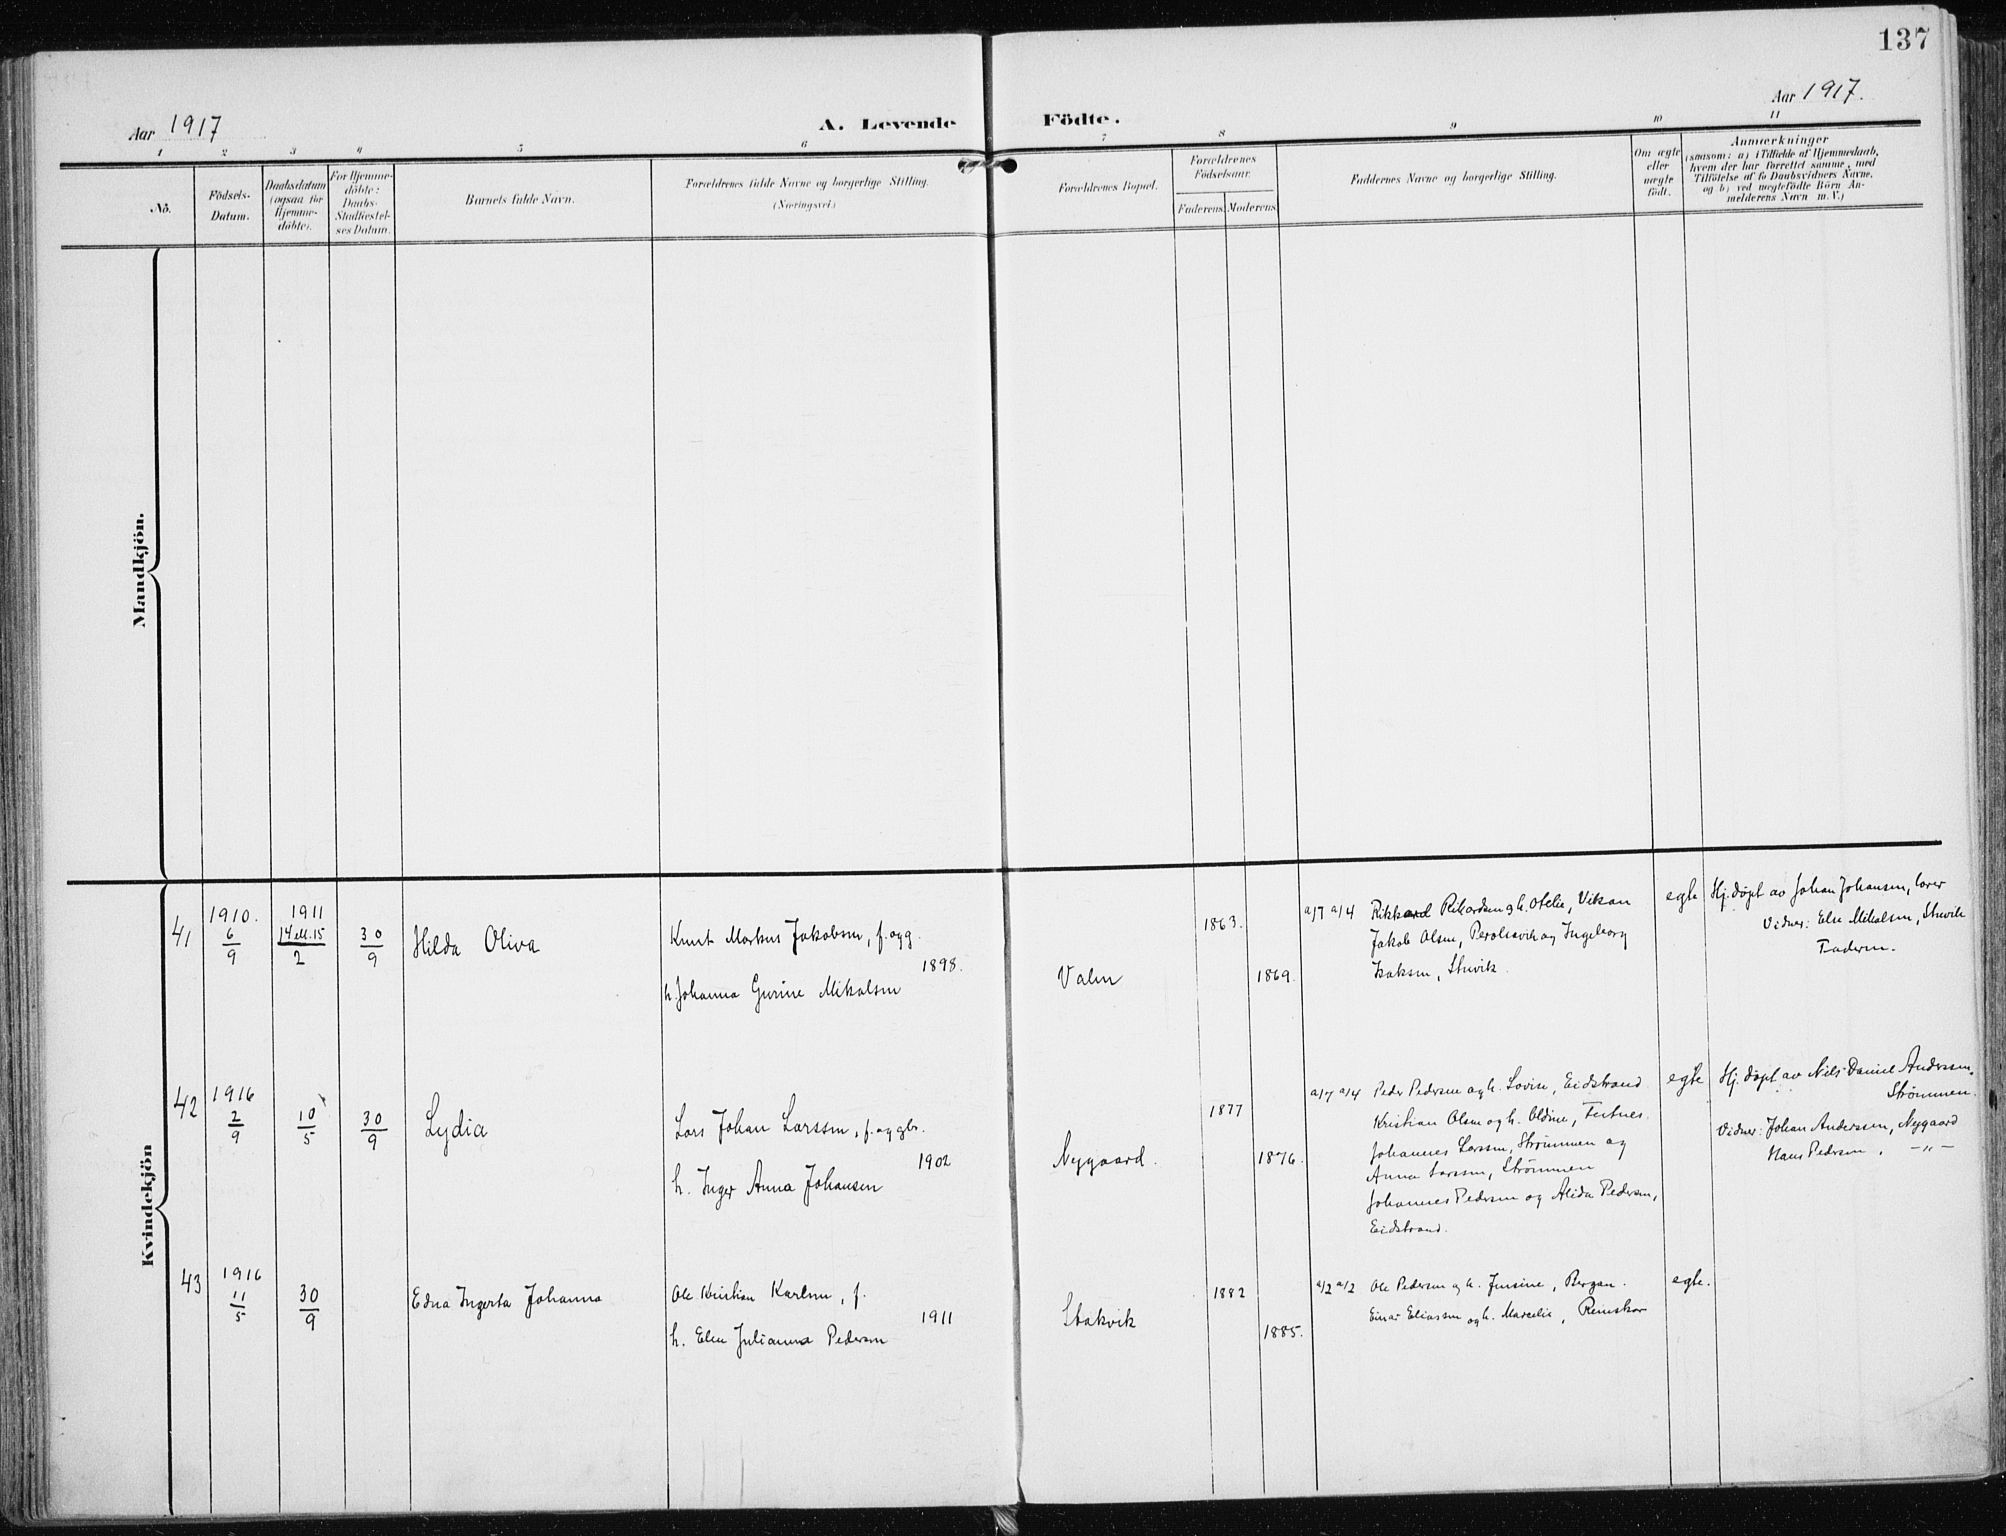 137
Aar 1917
A. Levende Födte.
Aar 1917.
1 2 3 4 5 6 7 8 9 10 11
No.
Födsels-
Datum.
Daabsdatum
(ogsaa for
Hjemme-
döbte).
For Hjemme-
döbte:
Daabs-
Stadfæstel-
ses Datum.
Barnets fulde Navn.
Forældrenes fulde Navne og borgerlige Stilling.
(Næringsvei.)
Forældrenes Bopæl.
Forældrenes
Födselsaar.
Faderens Moderens
Faddernes Navne og borgerlige Stilling.
Om ægte
eller
uægte
født.
Anmærkninger
(saasom: a) i Tilfælde af Hjemmedaab,
hvem der har forrettet samme, med
Tilföielse af to Daabsvidners Navne,
og b) ved uægtefödte Börn An-
melderens Navn m. V.)
Mandkjön.
Kvindekjön
41
1910.
6/9
1911
14
2
30/9
Hilda Oliva
Knut Markus Jakobsen, f. og g.
1898.
h. Johanna Gurine Mikalsen
Valen
1863.
1869.
a/7 a/4 Rikkard Rikardsen og h. Otelie, Vikan
Jakob Olsen, og Ingeborg
Isaksen,
egte
Hj. døpt av Johan Johansen, lærer
Vidner: Else Mikalsen,
Faderen.
42
1916
2/9
10/5
30/9
Lydia
Lars Johan Larssen, f. og gbr.
1902
h. Inger Anna Johansen
Nygaard.
1877
1876.
a/7 a/4 Peder Pedersen og h. Lovise, Eidstrand
Kristian Olsen og h. Oldine,
Johannes Larssen, Strømmen og
Anna Larssen, Strømmen
Johannes Pedersen og Alida Pedersen,
Eidstrand.
egte
Hj. døpt av Nils Daniel Anderssen,
Strømmen.
Vidner: Johan Anderssen, Nygaard
Hans Pedersen, -"-
43
1916
11/5
30/9
Edna Ingerta Johanna
Ole Kristian Karlsen, f.
1911
h. Elen Julianna Pedersen
Stakvik
1882
1885.
a/2 a/2 Ole Pedersen og h. Jensine, Bergan.
Einar Eliassen og h. Marcelie,
egte.